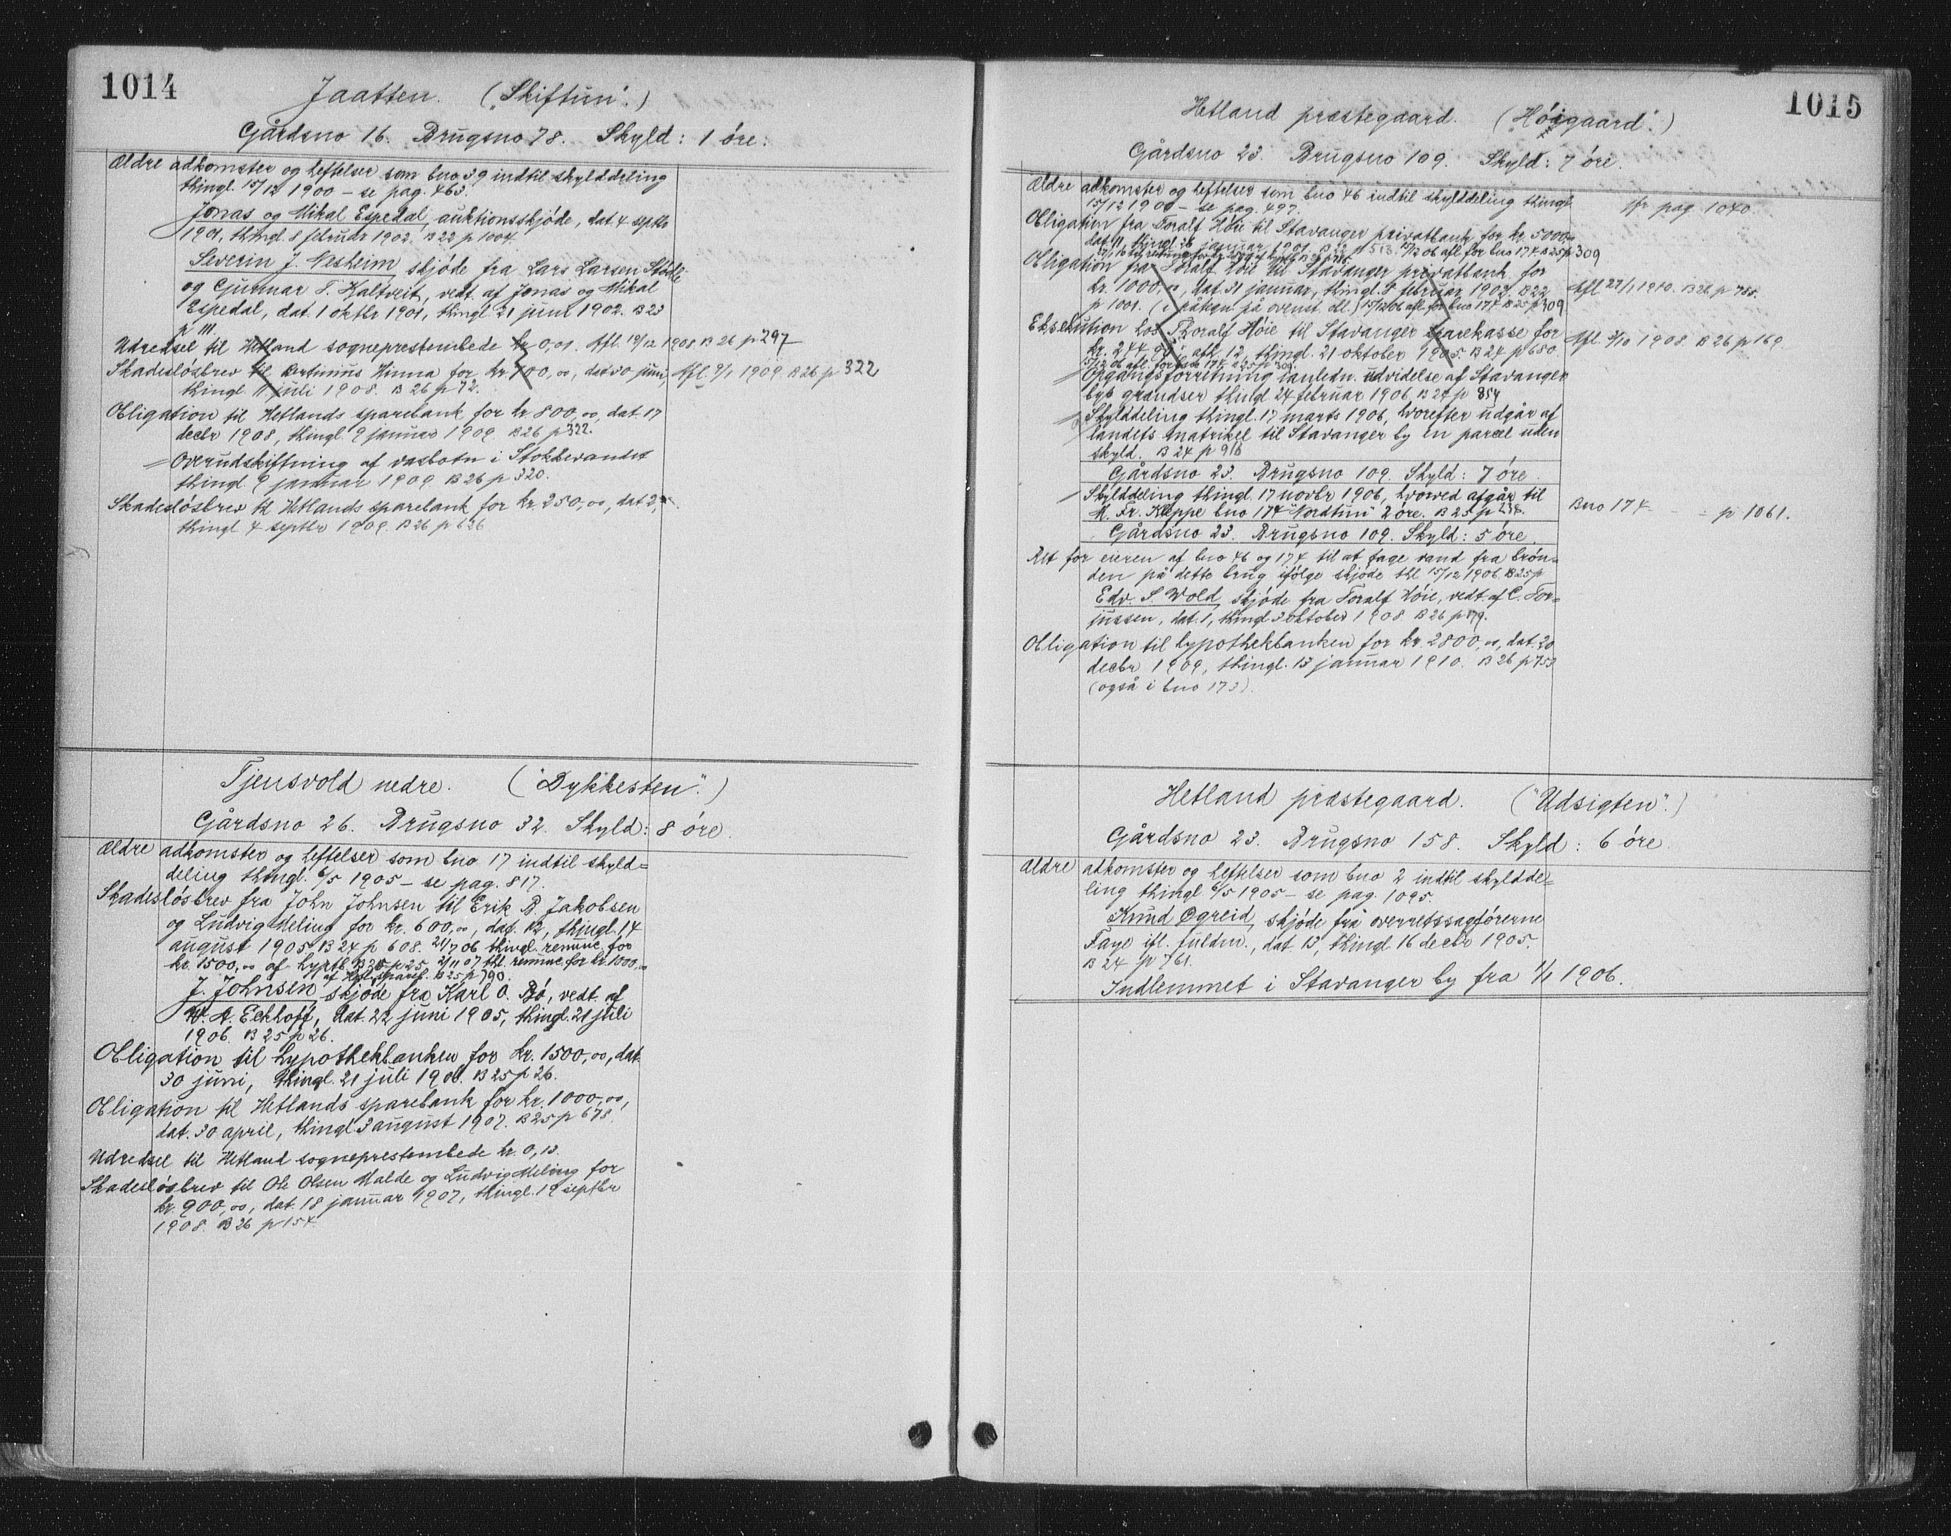 1014
Jaatten. ("Skiftun".)
Gårdsno 16. Brugsno 78. Skyld: 1 øre.
Ældre adkomster og heftelser som bno 39 indtil skylddeling
thingl. 15/12 1900 – se pag. 463.
Jonas og Mikal Espedal, auktionsskjøde, dat 4 septbr
1901, thingl. 8 februar 1902. B 22 p 1004.
Severin J. Nesheim skjøde fra Lars Larsen
og Gunnar T. Kaltveit, vedt. af Jonas og Mikal
Espedal, dat. 1 oktbr 1901, thingl 21 juni 1902. B 23
p 111.
Udredsel til Hetland sogneprestembede kr 0,01. Afl. 19/12 1908 B 26 p 297
Skadesløsbrev til Bertinius Hinna for kr 700,00, dat 30 juni, Afl. 9/1 1909 B 26 p 322
thingl 11 juli 1908. B 26 p 72.
Obligation til Hetlands sparebank for kr. 800,00, dat. 17
decbr 1908, thingl. 9 januar 1909 B 26 p 322.
Overudskiftning af vasbotn i Stokkevandet
thingl 9 januar 1909 B 26 p 320.
Skadesløsbrev til Hetlands sparebank for kr. 250,00, dat 2,
thingl 4 septbr 1909. B 26 p 626
Tjensvold nedre. ("Dykkesten".)
Gårdsno 26. Brugsno 32. Skyld: 8 øre.
Ældre adkomster og heftelser som bno 17 indtil skyld=
deling thingl. 6/5 1905 – se pag. 817.
Skadesløsbrev fra John Johnsen til Erik B. Jakobsen
og Ludvig Meling for kr. 600,00, dat. 12, thingl. 14
august 1905. B 24 p 608. 21/7 06 thingl. renunc. for
kr. 1500,00 af hyptb. B 25 p 25. 2/11 07 thl. renunc. for kr. 1000,00
af Hetl. spareb. B 25 p 790.
J. Johnsen skjøde fra Karl O. Bø, vedt. af
W. A. Eckhoff, dat. 22 juni 1905, thingl. 21 juli
1906. B 25 p 26.
Obligation til hypothekbanken for kr. 1500,00, dat.
30 juni, thingl. 21 juli 1906. B 25 p 26.
Obligation til Hetlands sparebank for kr. 1000,00,
dat. 30 april, thingl 3 august 1907. B 25 p 678.
Udredsel til Hetland sogneprestembede kr. 0,13.
Skadesløsbrev til Ole Olsen Malde og Ludvig Meling for
kr. 900,00, dat. 18 januar 1907, thingl. 19 septbr
1908. B 26 p 154.
1015
Hetland prestegaard. ("Høigaard".)
Gårdsno 23. Brugsno 109. Skyld: 7 øre.
Ældre adkomster og heftelser som bno 46 indtil skylddeling thingl.
15/12 1900 – se pag. 497. jfr pag 1040
Obligation fra Toralf Høie til Stavanger privatbank for kr. 5000,00
dat. 11, thingl. januar 1901. B 22 p 513. 15/12 06 afl. for bno 174 B 25 p 309
Obligation fra Toralf Høie til Stavanger privatbank for
kr. 1000,00, dat. 31 januar, thingl. 8 februar 1902. B 22 Afl 22/1 1910. B 26 p 758.
p 1001. ( påtegn på ovenst. obl.) 15/12 06 afl. for bno 174 B 25 p 309
Eksekution hos Thoralf Høie til Stavanger sparekasse for
kr. 244,84, afh. 12, thingl. 21 oktober 1905. B 24 p 680. Afl. 3/10 1908 B 26 p 169.
15/12 06 afl. for bno 174 B 25 p 309.
Opgangsforretning i anledn. udvidelse af Stavanger
bys grændser thingl 24 februar 1906, B 24 p 854
Skylddeling thingl. 17 marts 1906, hvorefter udgår af
landets matrikel til Stavanger by en parcel uden
skyld. B 24 p 916
Gårdsno 23. Brugsno 109. Skyld: 7 øre
Skylddeling thingl. 17 novbr 1906, hvorved afgår til
M. Fr. Kleppe bno 174 "Nordtun" 2 øre. B 25 p 238. Bno 174 – – p 1061.
Gårdsno 23. Brugsno 109. Skyld: 5 øre.
Ret for eieren af bno 46 og 174 til at tage vand fra brøn=
den på dette brug ifølge skjøde thl 15/12 1906. B 25 p
Edv. S. Wold skjøde fra Toralf Høie, vedt. af C. Tor=
jussen, dat. 1, thingl 3 oktober 1908 B 26 p 179.
Obligation til hypothekbanken for kr. 2800,00, dat. 20
decbr 1909, thingl. 15 januar 1910. B 26 p 753
(også i bno 173).
Hetland prestegaard. ("Udsigten".)
Gårdsno 23. Brugsno 158. Skyld: 6 øre.
Ældre adkomster og heftelser som bno 2 indtil skyldde=
ling thingl 6/5 1905 – se pag. 1095.
Knud Øgreid, skjøde fra overretssagførerne
Faye ifl. fuldm., dat. 13, thingl. 16 decbr 1905.
B 24 p 761.
Indlemmet i Stavanger by fra 1/1 1906.